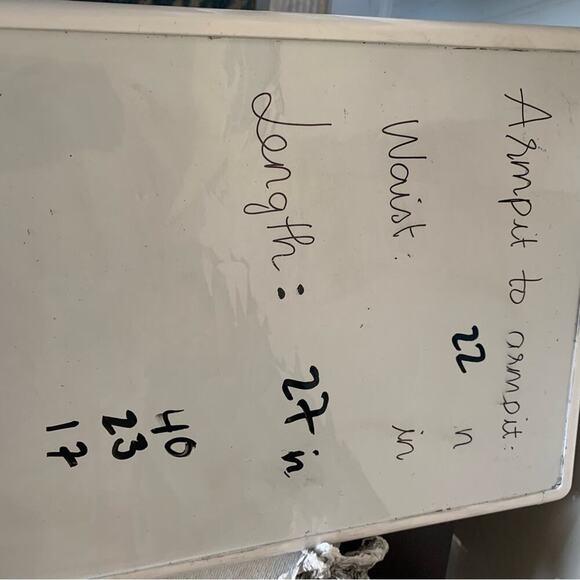 Armpit to armpit:
22 n
Waist: in
Length: 27 in
40
23
17